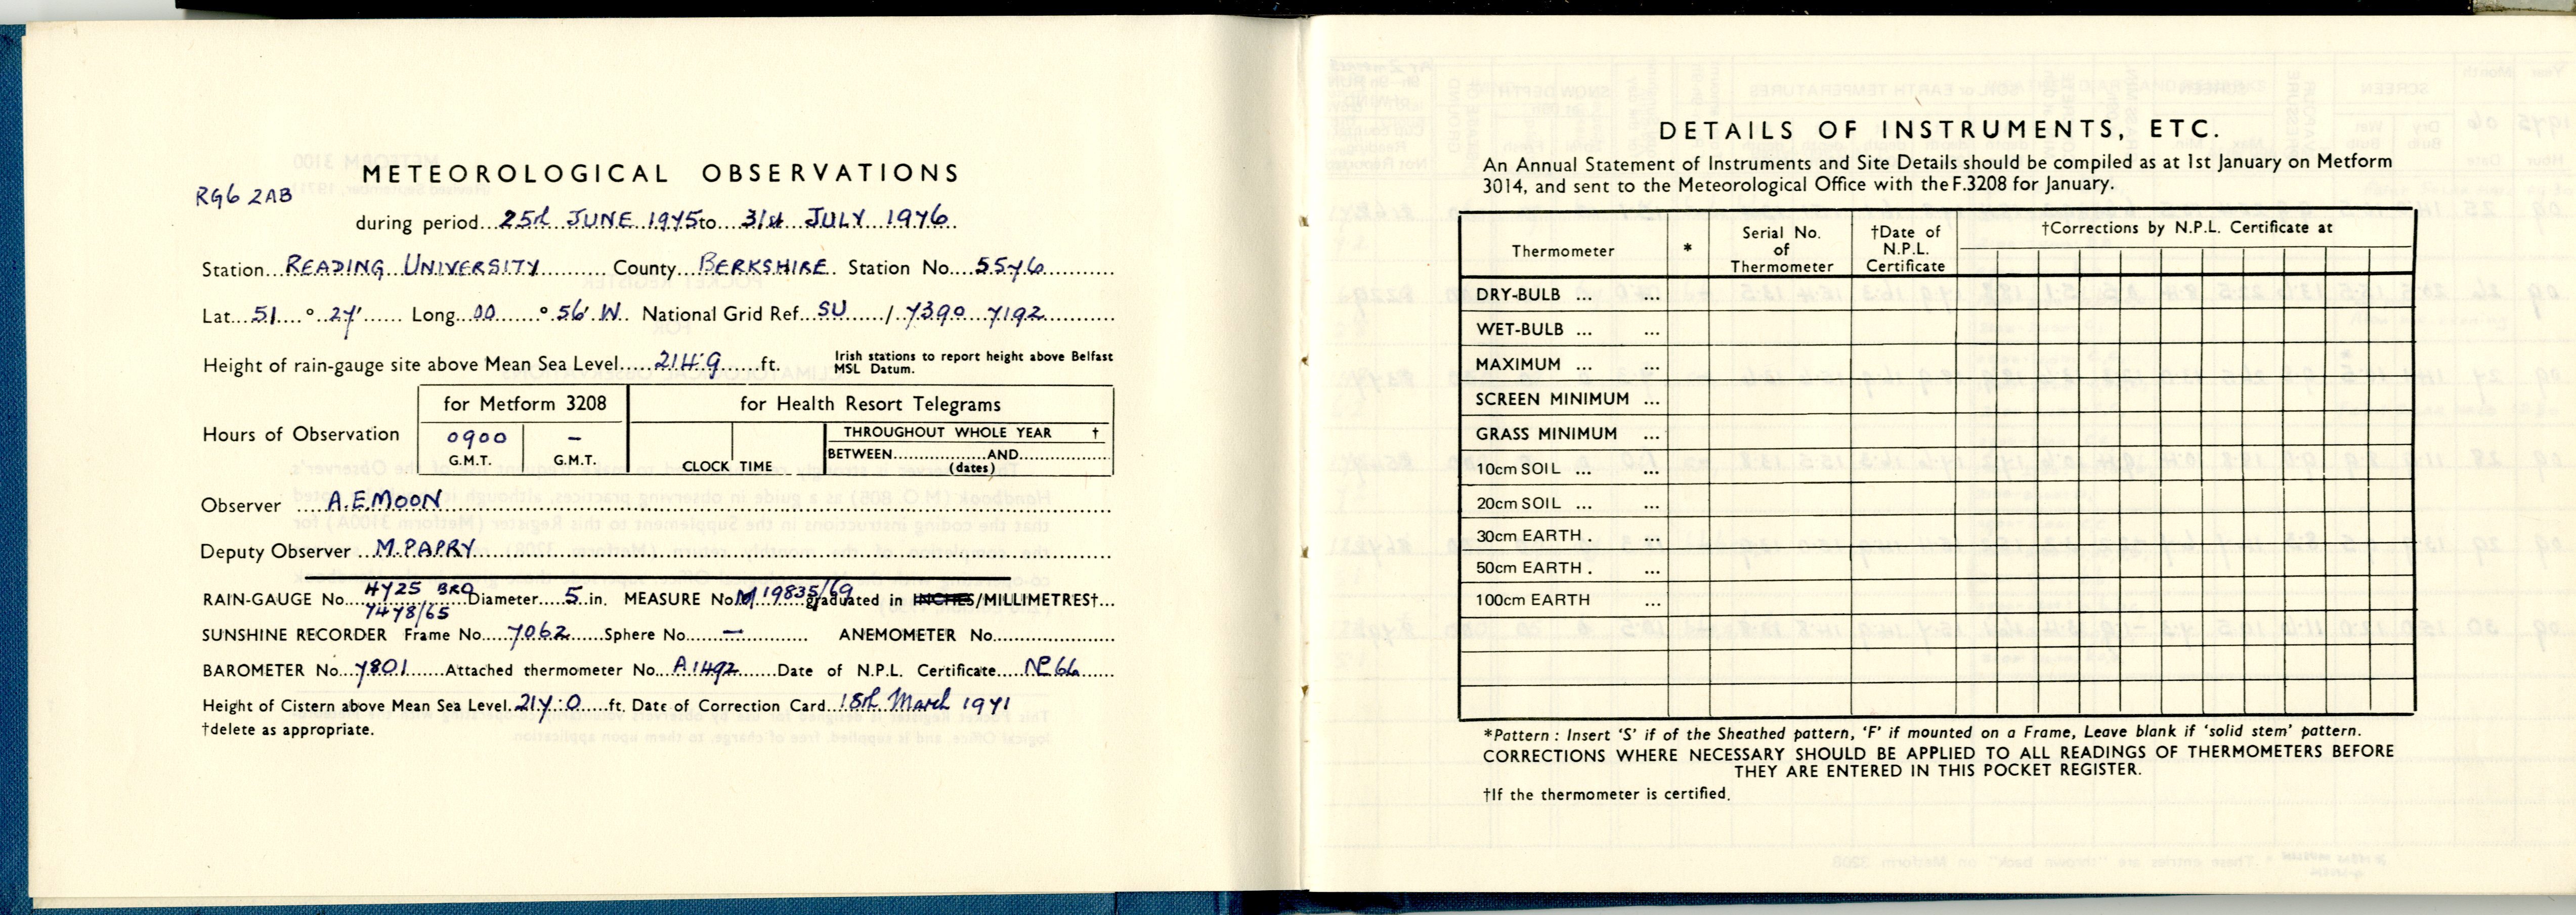 METEOROLOGICAL OBSERVATIONS
RG6 2AB
during period...25th JUNE 1975 to...31st JULY 1976
Station...READING UNIVERSITY.......... County...BERKSHIRE.. Station No...5576
Lat...51....°..27'...... Long...00.......°.56' W.. National Grid Ref...SU....../..7390 7192
Height of rain-gauge site above Mean Sea Level.....214.9......ft.
Irish stations to report height above Belfast
MSL Datum.
for Metform 3208 for Health Resort Telegrams
Hours of Observation
0900 –
G.M.T. G.M.T.
CLOCK TIME
THROUGHOUT WHOLE YEAR †
BETWEEN..................AND..................
(dates)
Observer ....A.E.MOON
Deputy Observer ...M.PAPRY
4725 BRO
RAIN-GAUGE No....................Diameter.....5..in. MEASURE No.M 19835/69 graduated in INCHES/MILLIMETRES†...
7478/65
SUNSHINE RECORDER Frame No.....7062......Sphere No......–........... ANEMOMETER No....................
BAROMETER No...7801......Attached thermometer No...A1492.......Date of N.P.L. Certificate.....No 66
Height of Cistern above Mean Sea Level.217.0.....ft. Date of Correction Card...18th March 1971
†delete as appropriate.
DETAILS OF INSTRUMENTS, ETC.
An Annual Statement of Instruments and Site Details should be compiled as at 1st January on Metform
3014, and sent to the Meteorological Office with the F.3208 for January.
Thermometer
*
Serial No.
of
Thermometer
†Date of
N.P.L.
Certificate
†Corrections by N.P.L. Certificate at
DRY-BULB ... ...
WET-BULB ... ...
MAXIMUM ... ...
SCREEN MINIMUM ...
GRASS MINIMUM ...
10cm SOIL ... ...
20cm SOIL ... ...
30cm EARTH . ...
50cm EARTH . ...
100cm EARTH ...
*Pattern : Insert 'S' if of the Sheathed pattern, 'F' if mounted on a Frame, Leave blank if 'solid stem' pattern.
CORRECTIONS WHERE NECESSARY SHOULD BE APPLIED TO ALL READINGS OF THERMOMETERS BEFORE
THEY ARE ENTERED IN THIS POCKET REGISTER.
†If the thermometer is certified.